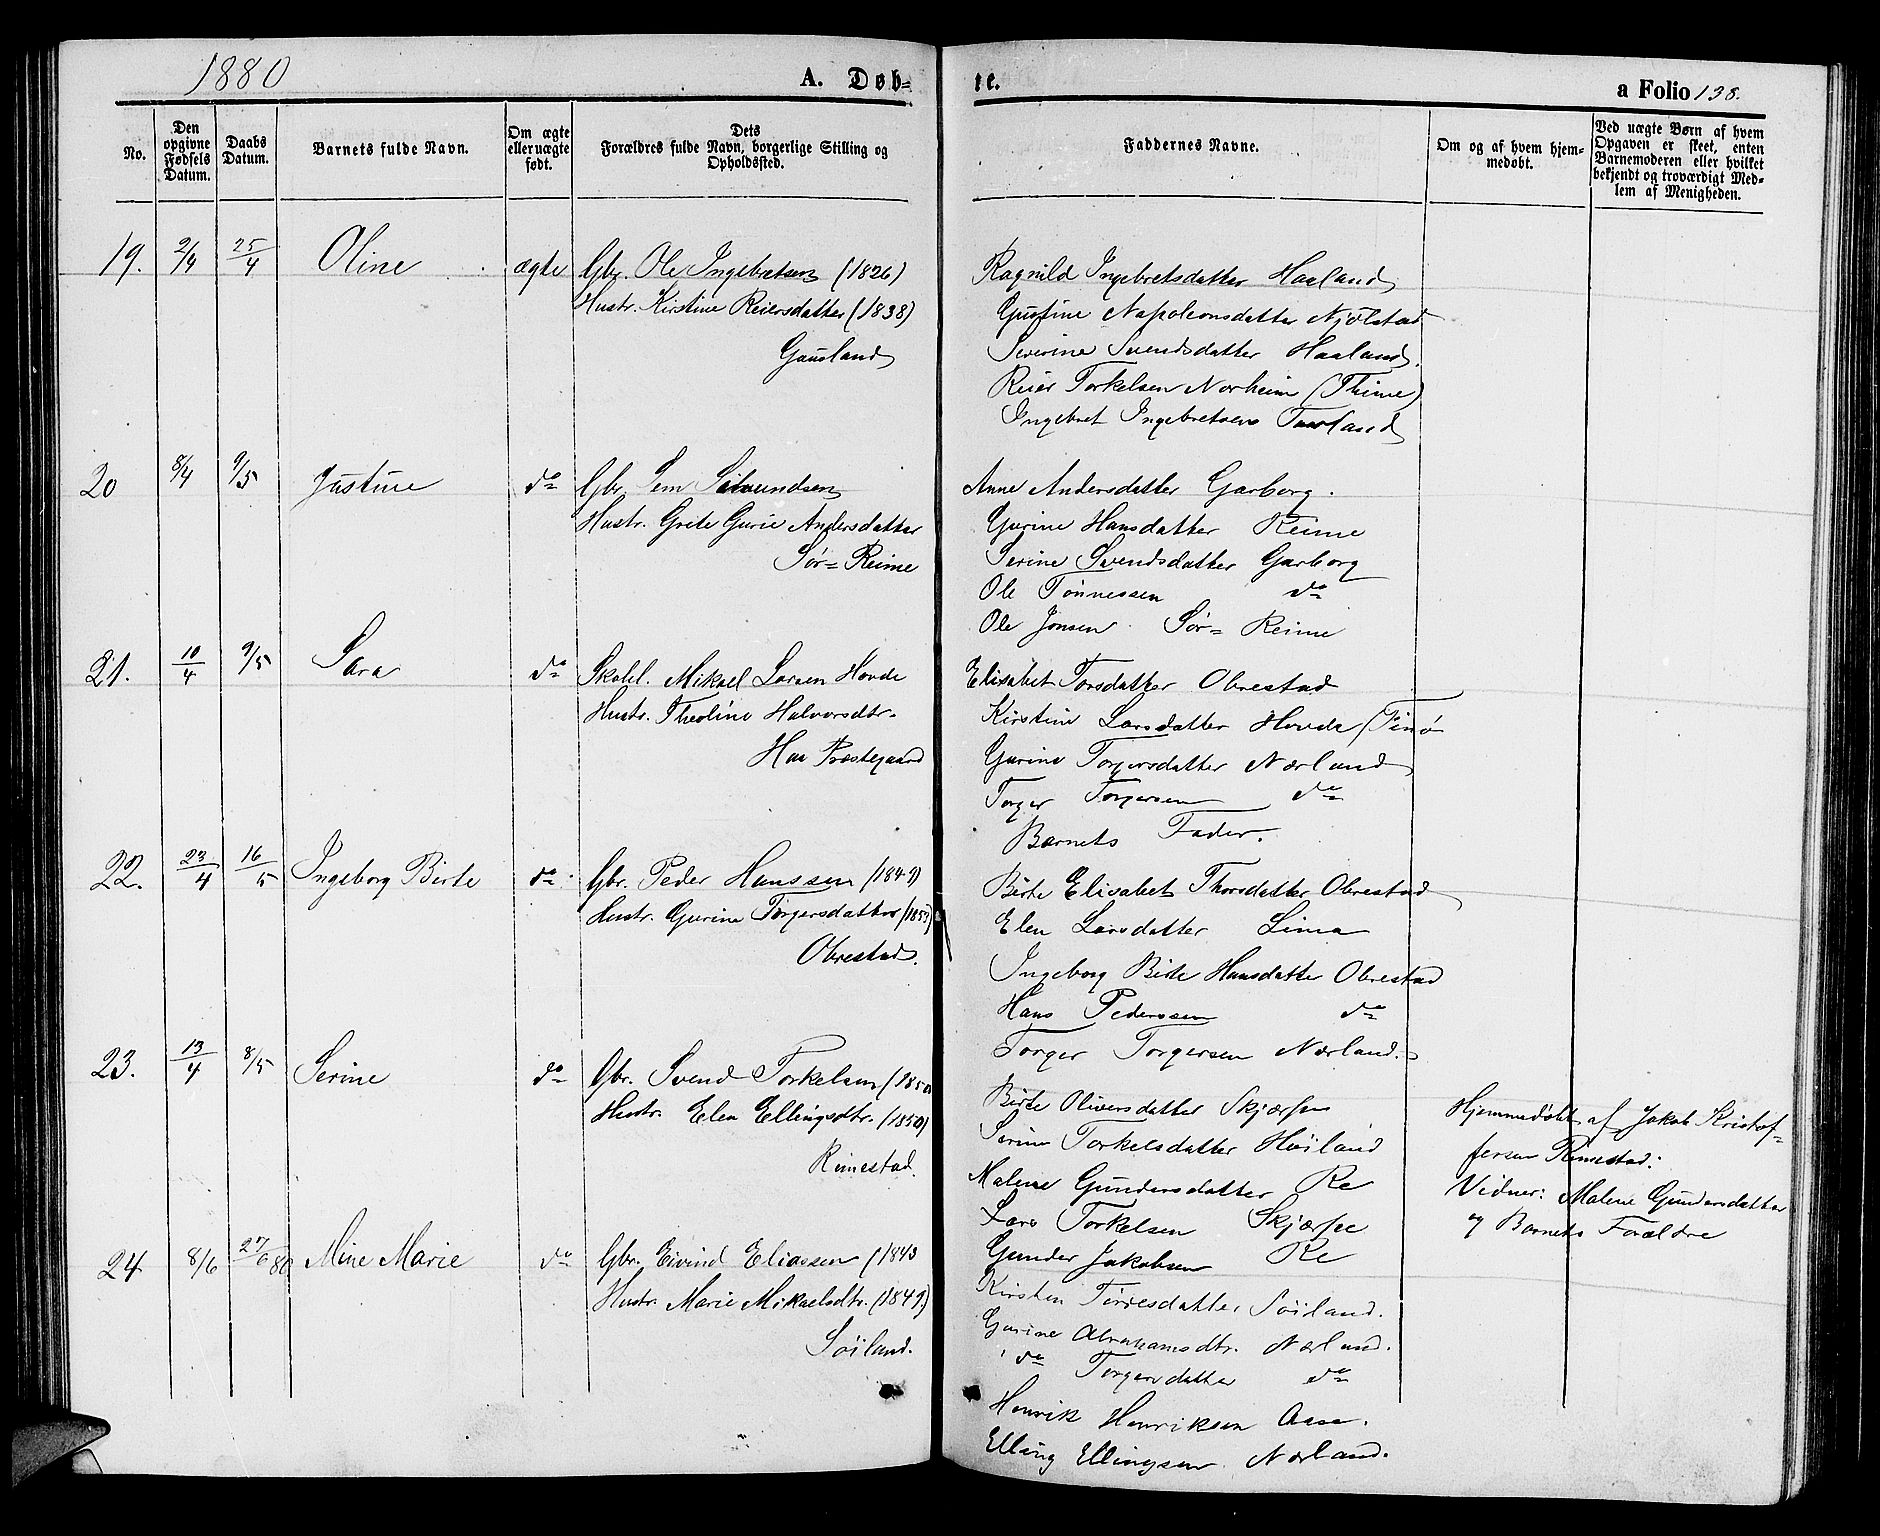 1880
A. Døb-
te.
a Folio 138.
No.
Den opgivne Fødsels Datum.
Daabs Datum.
Barnets fulde Navn.
Om ægte eller uægte født.
Dets Forældres fulde Navn, borgerlige Stilling og Opholdssted.
Faddernes Navne.
Om og af hvem hjem-
medøbt.
Ved uægte Børn af hvem
Opgaven er skeet, enten
Barnemoderen eller hvilket
bekjendt og troværdigt Med-
lem af Menigheden.
19. 2/4 25/4 Oline ægte Gbr. Ole Ingebretsen (1826)
Hustr. Kirstine Reiersdatter (1838)
Gausland
Ragnild Ingebretsdatter Haaland
Gustine Napoleonsdatter Njølstad
Severine Svendsdatter Haaland.
Reier Torkelsen Norheim (Thime)
Ingebret Ingebretsen
20 8/4 9/5 Justine do Gbr. Sem
Hustr. Grete Gurie Andersdatter
Sør-Reime
Anne Andersdatter Garborg.
Gurine Hansdatter Reime
Serine Svendsdatter Garborg
Ole Tønnessen do
Ole Jonsen Sør-Reime
21. 10/4 9/5 Sara do Mikael Larsen Hovde
Hustr. Theoline Halvorsdtr.
Haa Præstegaard
Elisabet Torsdatter Obrestad
Kirstine Larsdatter Hovde
Gurine Torgersdatter Nærland
Torger Torgersen do
Barnets Fader.
22. 23/4 16/5 Ingeborg Birte do. Gbr. Peder Hanssen (1849)
Hustr. Gurine Torgersdatter (1853)
Obrestad.
Birte Elisabet Thorsdatter Obrestad
Elen Larsdatter Lima
Ingeborg Birte Hansdatte Obrestad
Hans Pederssen do
Torger Torgersen Nærland.
23. 13/4 8/5 Serine do Gbr. Svend Torkelsen (1850
Hustr. Elen Ellingsdtr. (1850)
Rimestad.
Birte Oliversdatter
Serine Torkelsdatter Høiland
Malene Gundersdatter Re
Lars Torkelsen
Gunder Jakobsen Re
Hjemmedøbt af Jakob Kristof-
fersen Rimestad.
Vidner: Malene Gundersdatter
og Barnets Forældre
24 8/6 27/6 80 Mine Marie do Gbr. Eivind Eliassen (1843
Hustr. Marie Mikaelsdtr. (1849.)
Søiland.
Kirsten Torresdatter Søiland.
Gurine Abrahamsdtr. Nærland.
do Torgersdatter do
Henrik Henriksen Aase.
Elling Ellingsen Nærland.